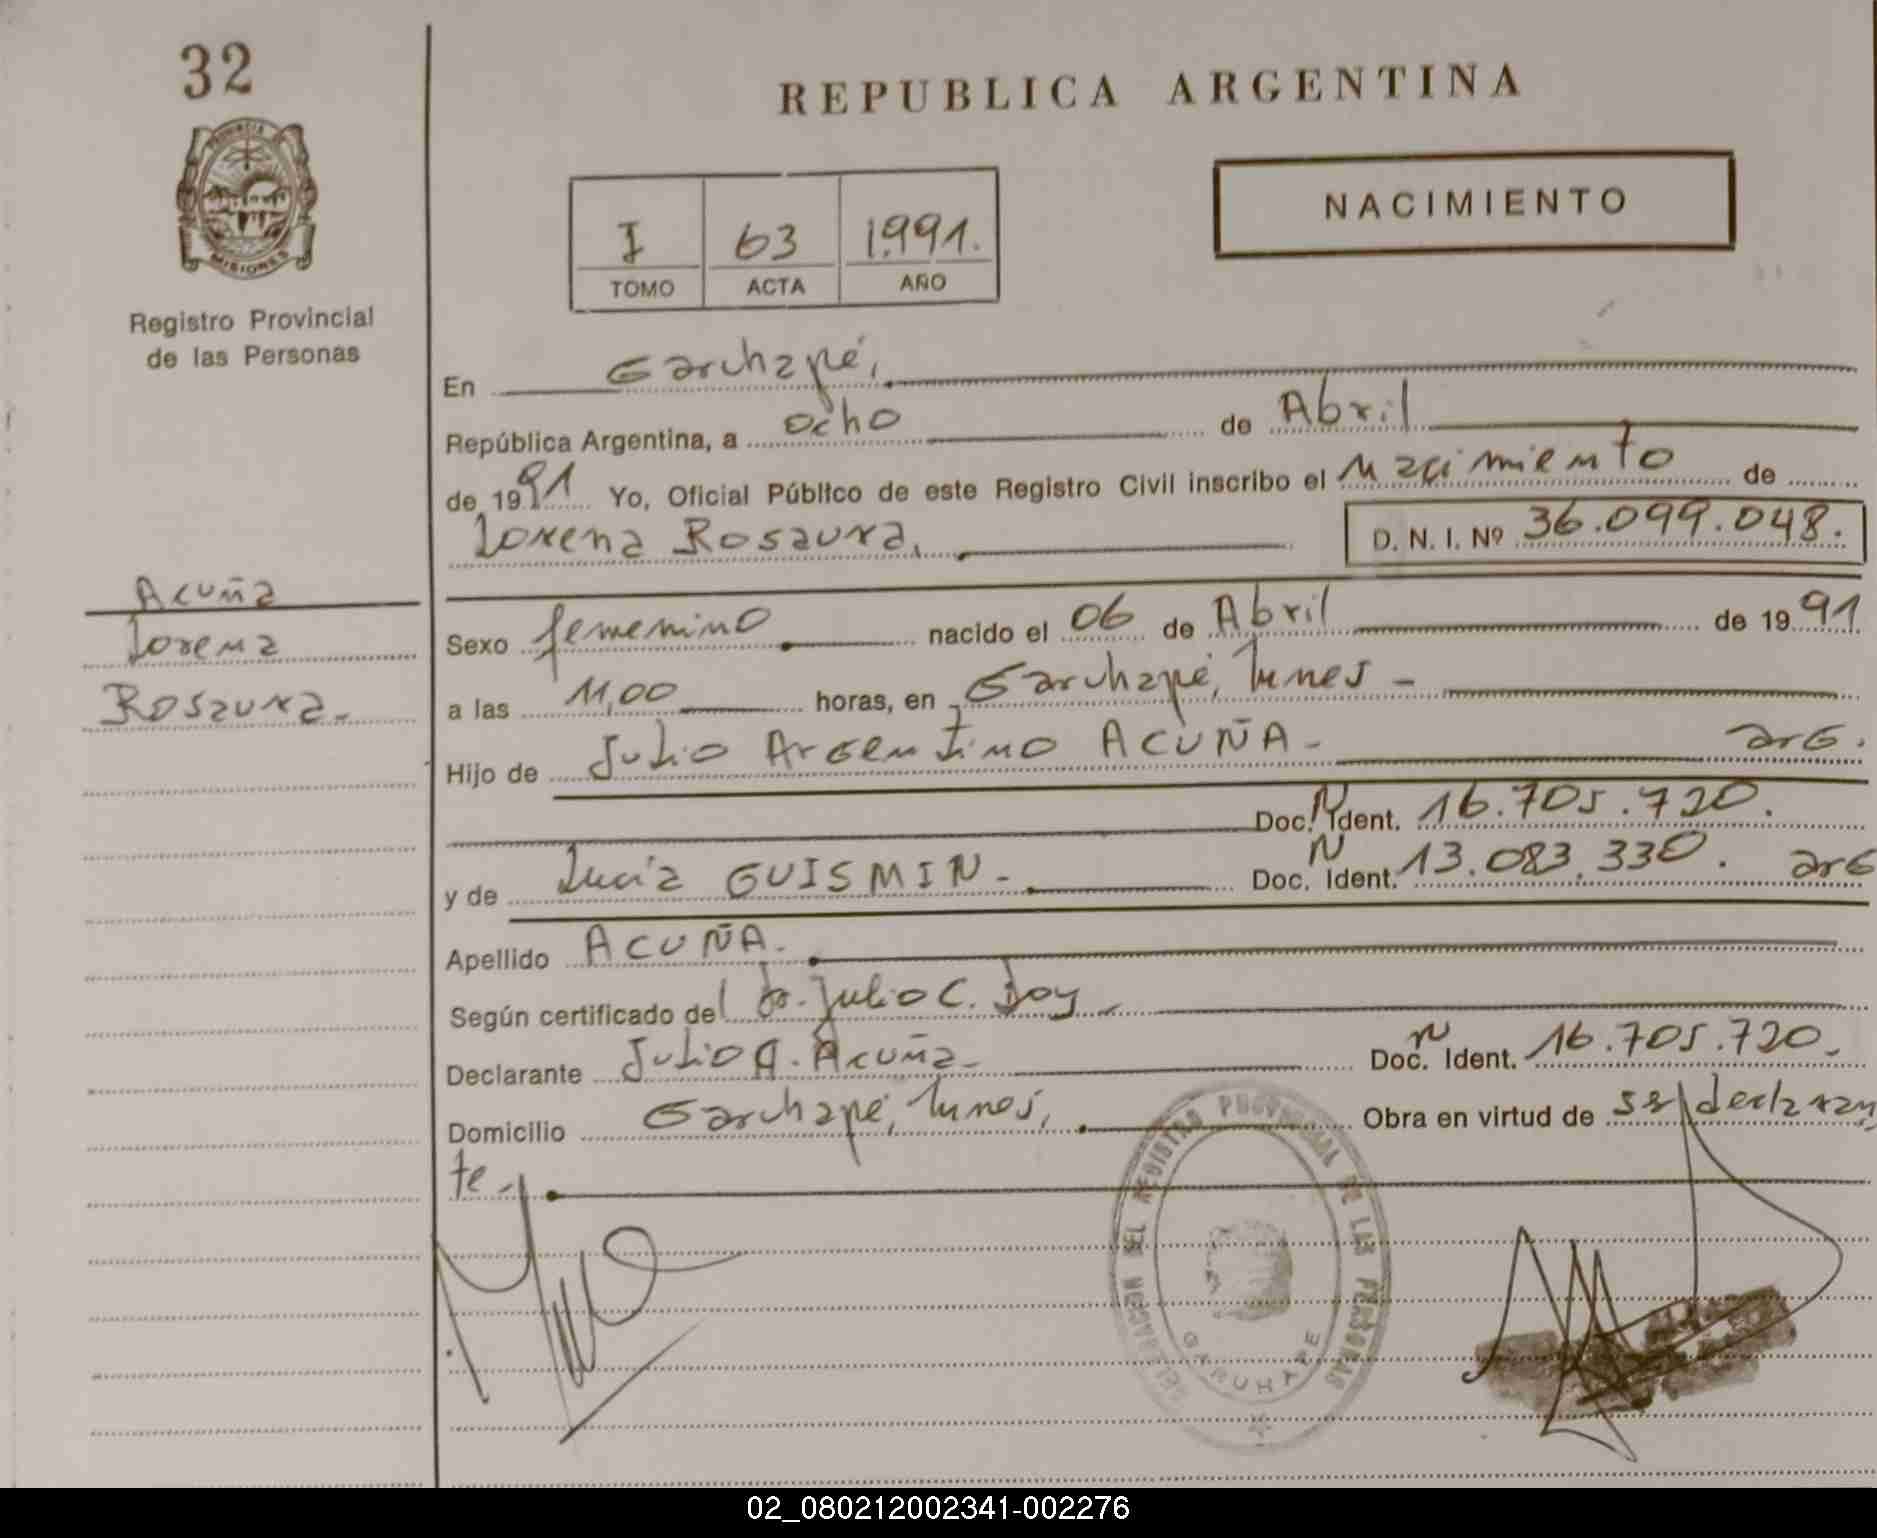 32
REPUBLICA ARGENTINA
PROVINCIA DE
MISIONES
Registro Provincial
de las Personas
I 63 1.991.
TOMO ACTA AÑO
NACIMIENTO
En Garuhapé,
República Argentina, a ocho de Abril
de 1991 Yo, Oficial Público de este Registro Civil inscribo el Nacimiento de
Lorena Rosaura. D. N. I. Nº 36.099.048.
Acuña
Lorena
Rosaura.-
Sexo femenino nacido el 06 de Abril de 1991
a las 11,00 horas, en Garuhapé, Mnes -
Hijo de Julio Argentino ACUÑA - arG.
Doc. N Ident. 16.705.720.
y de Lucía GUISMIN - Doc. N Ident. 13.083.330. arG
Apellido ACUÑA.
Según certificado del Dr. Julio C. Doy -
Declarante Julio A. Acuña - Doc. N Ident. 16.705.720.
Domicilio Garuhapé, Mnes, Obra en virtud de ser declaran
te -
DELEGACION DEL REGISTRO PROVINCIAL DE LAS PERSONAS
GARUHAPE
02_080212002341-002276